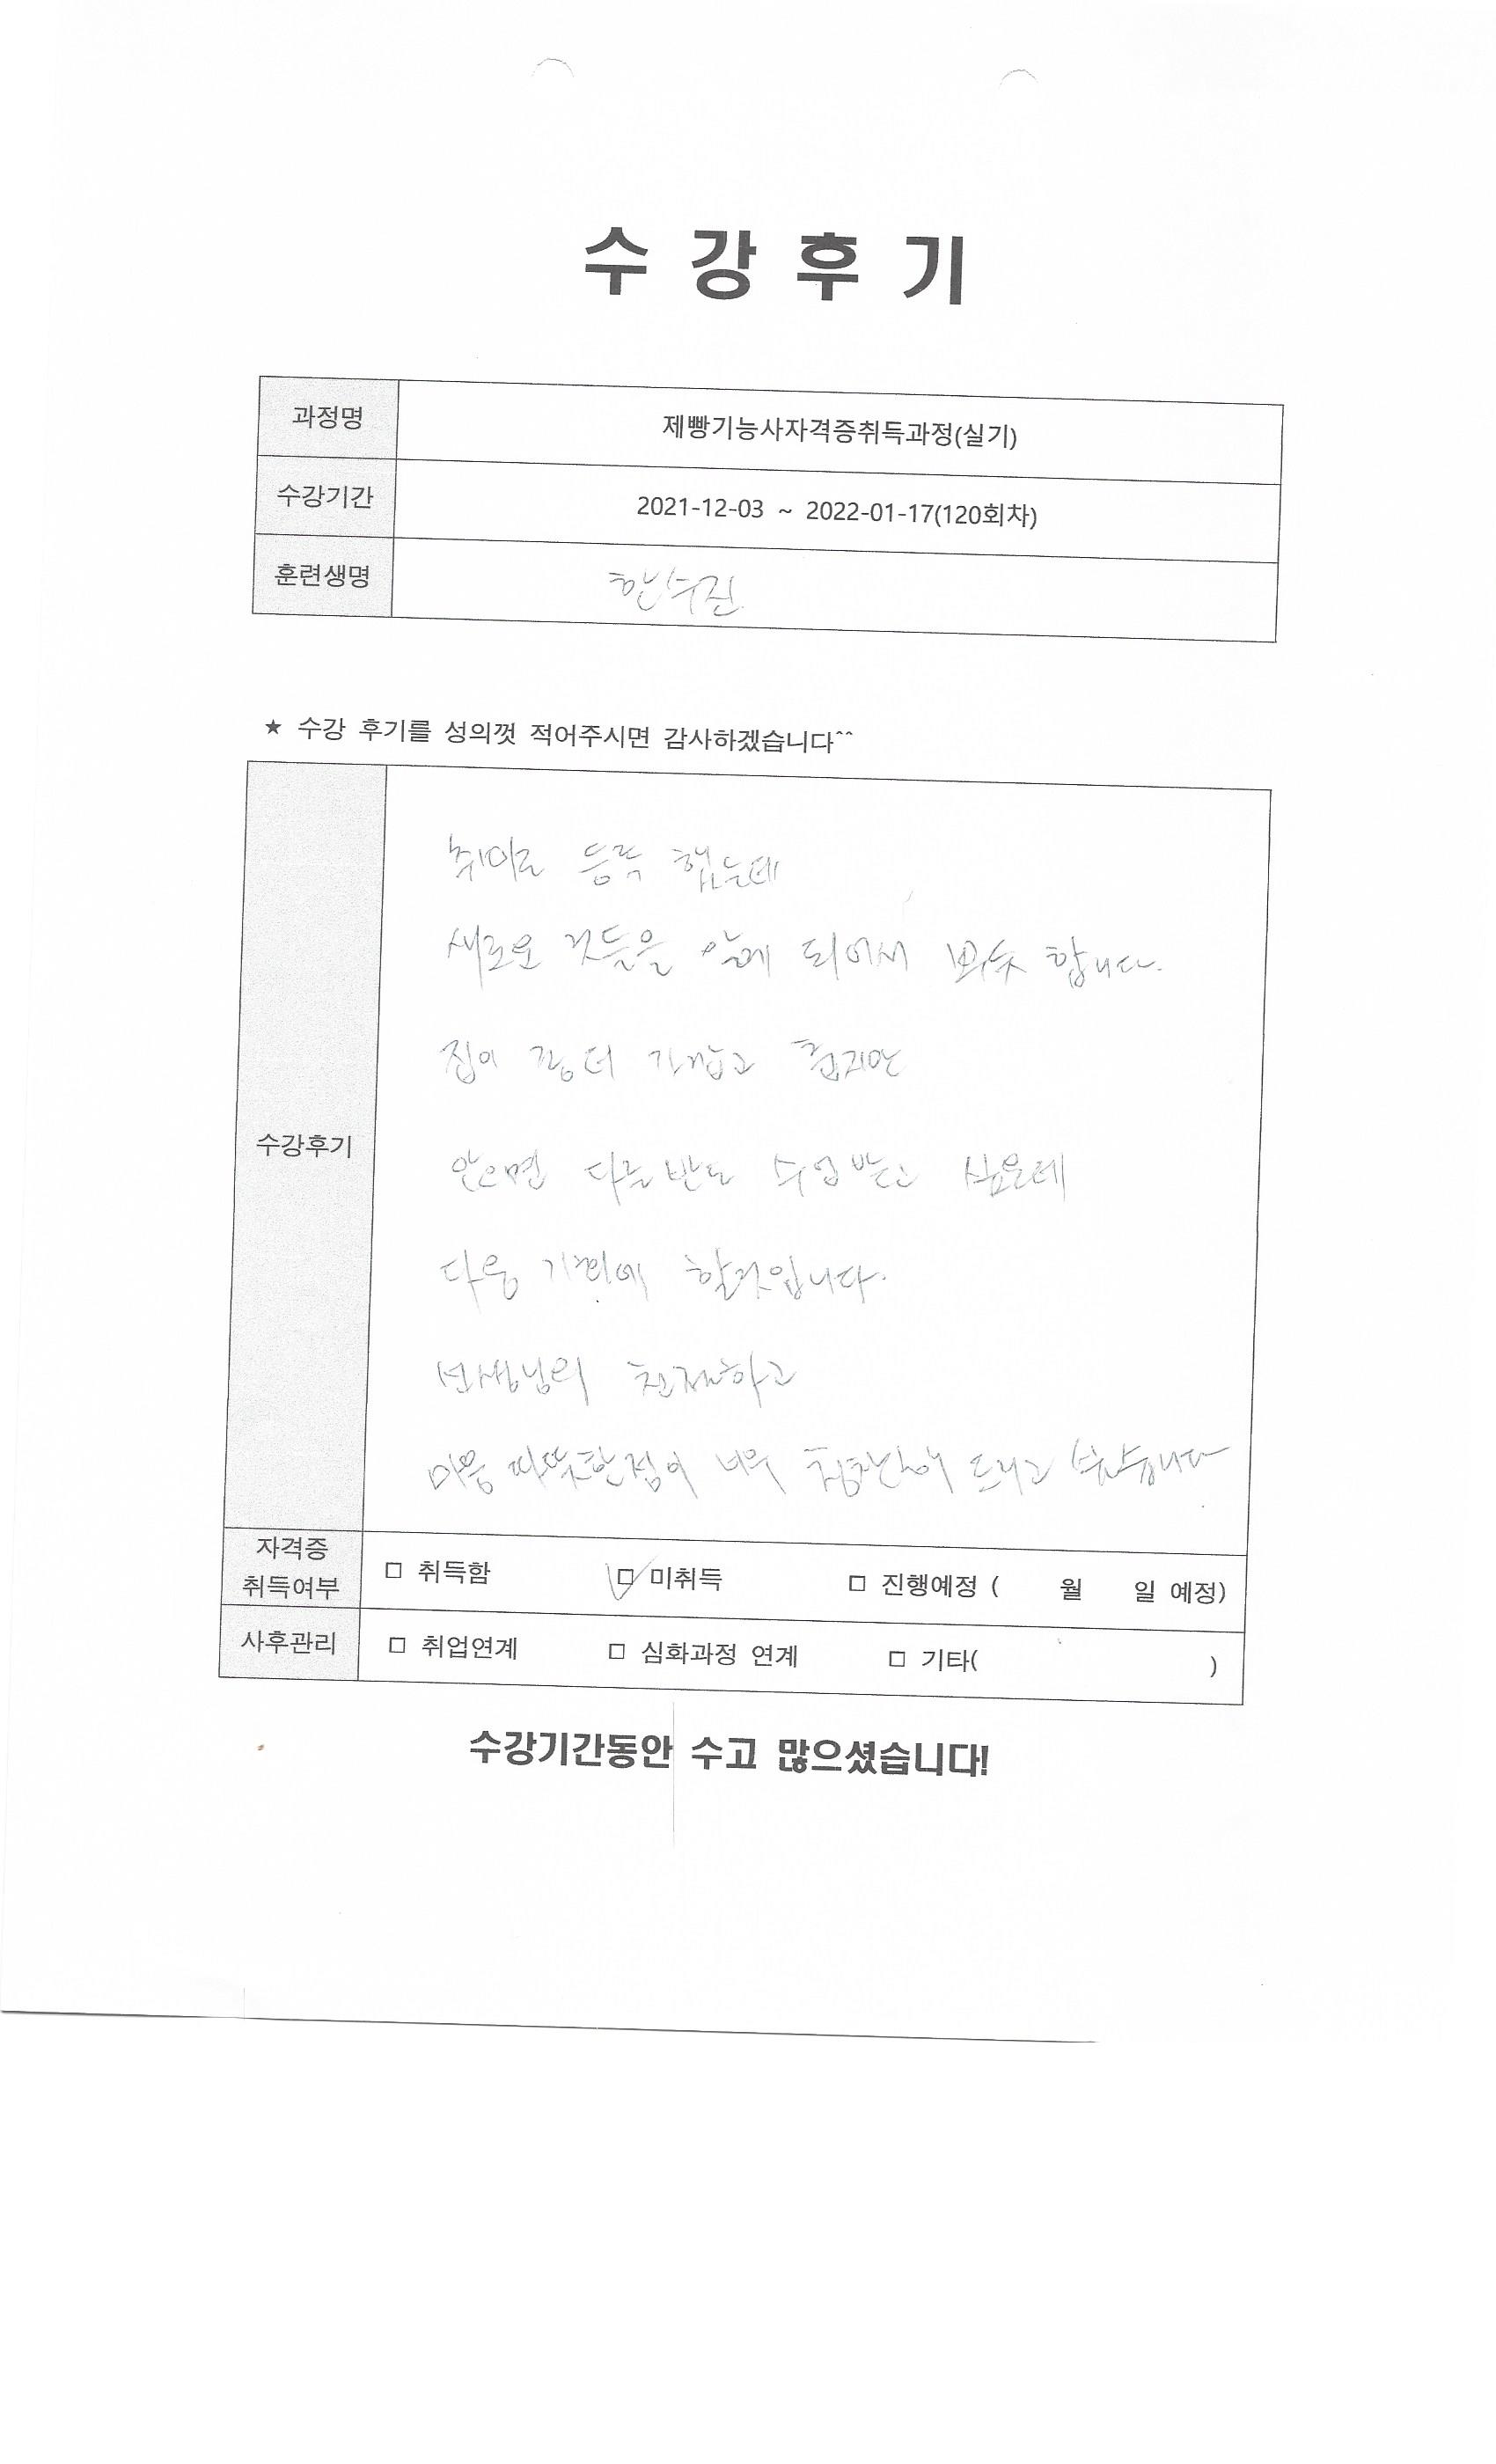 수 강 후 기
과정명 제빵기능사자격증취득과정(실기)
수강기간 2021-12-03 ~ 2022-01-17(120회차)
훈련생명 한수진
★ 수강 후기를 성의껏 적어주시면 감사하겠습니다^^
수강후기
취미로 등록 했는데
새로운 것들을 알게 되어서 뿌듯 합니다.
집이 좀 더 가깝고 춥지만
않으면 다른 반도 수업 받고 싶은데
다음 기회에 할것입니다.
선생님의 친절하고
마음 따뜻한점이 너무 칭찬해 드리고 싶습니다
자격증 취득여부 □ 취득함 □ 미취득 □ 진행예정 ( 월 일 예정)
사후관리 □ 취업연계 □ 심화과정 연계 □ 기타( )
수강기간동안 수고 많으셨습니다!